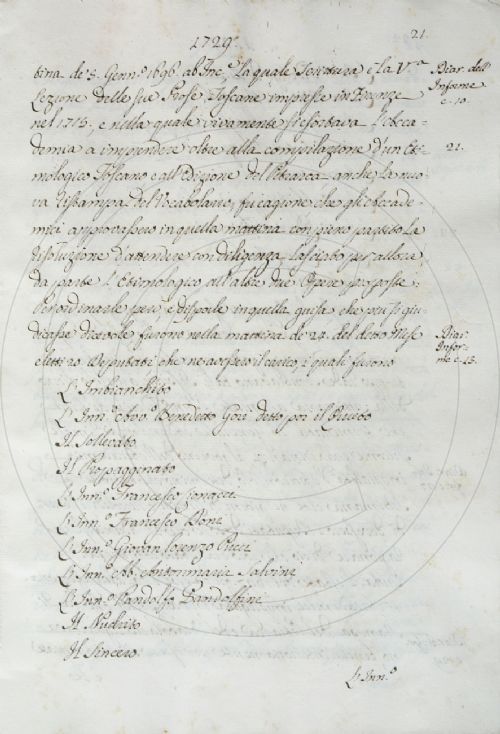 21.
1729.
tina de' 5. Genn.º 1696. ab Inc.º, la quale Scrittura è la V.ª
Lezione delle sue Prose Toscane impresse in Firenze
nel 1715, e nella quale vivamente si esortava l'Acca-
demia a imprendere oltre alla compilazione d'un Eti-
mologico Toscano e all'Edizione del Petrarca anche la nuo-
va ristampa del Vocabolario, fu cagione che gli Accade-
mici approvassero in quella mattina con pieno partito la
risoluzione d'attendere con diligenza, lasciato per allora
da parte l'Etimologico all'altre due Opere proposte;
Per ordinarle però e disporle in quella guisa che più si giu-
dicasse dicevole furono nella mattina de' 24. del detto Mese
eletti 20 Deputati che ne avessero il carico, i quali furono
L'Imbianchito
L'Inn.º Avv.º Benedetto Gori detto poi il
Il Sollevato
Il Propagginato
L'Inn.º Francesco
L'Inn.º Francesco Doni
L'Inn.º Giovan Lorenzo Pucci
L'Inn.º Ab. Antonmaria Salvini
L'Inn.º Pandolfo Pandolfini
Il Nudrito
Il Sincero
L'Inn.º
Diar. dell'
Informe
c. 10.
21.
Diar.
Infor-
me c. 13.